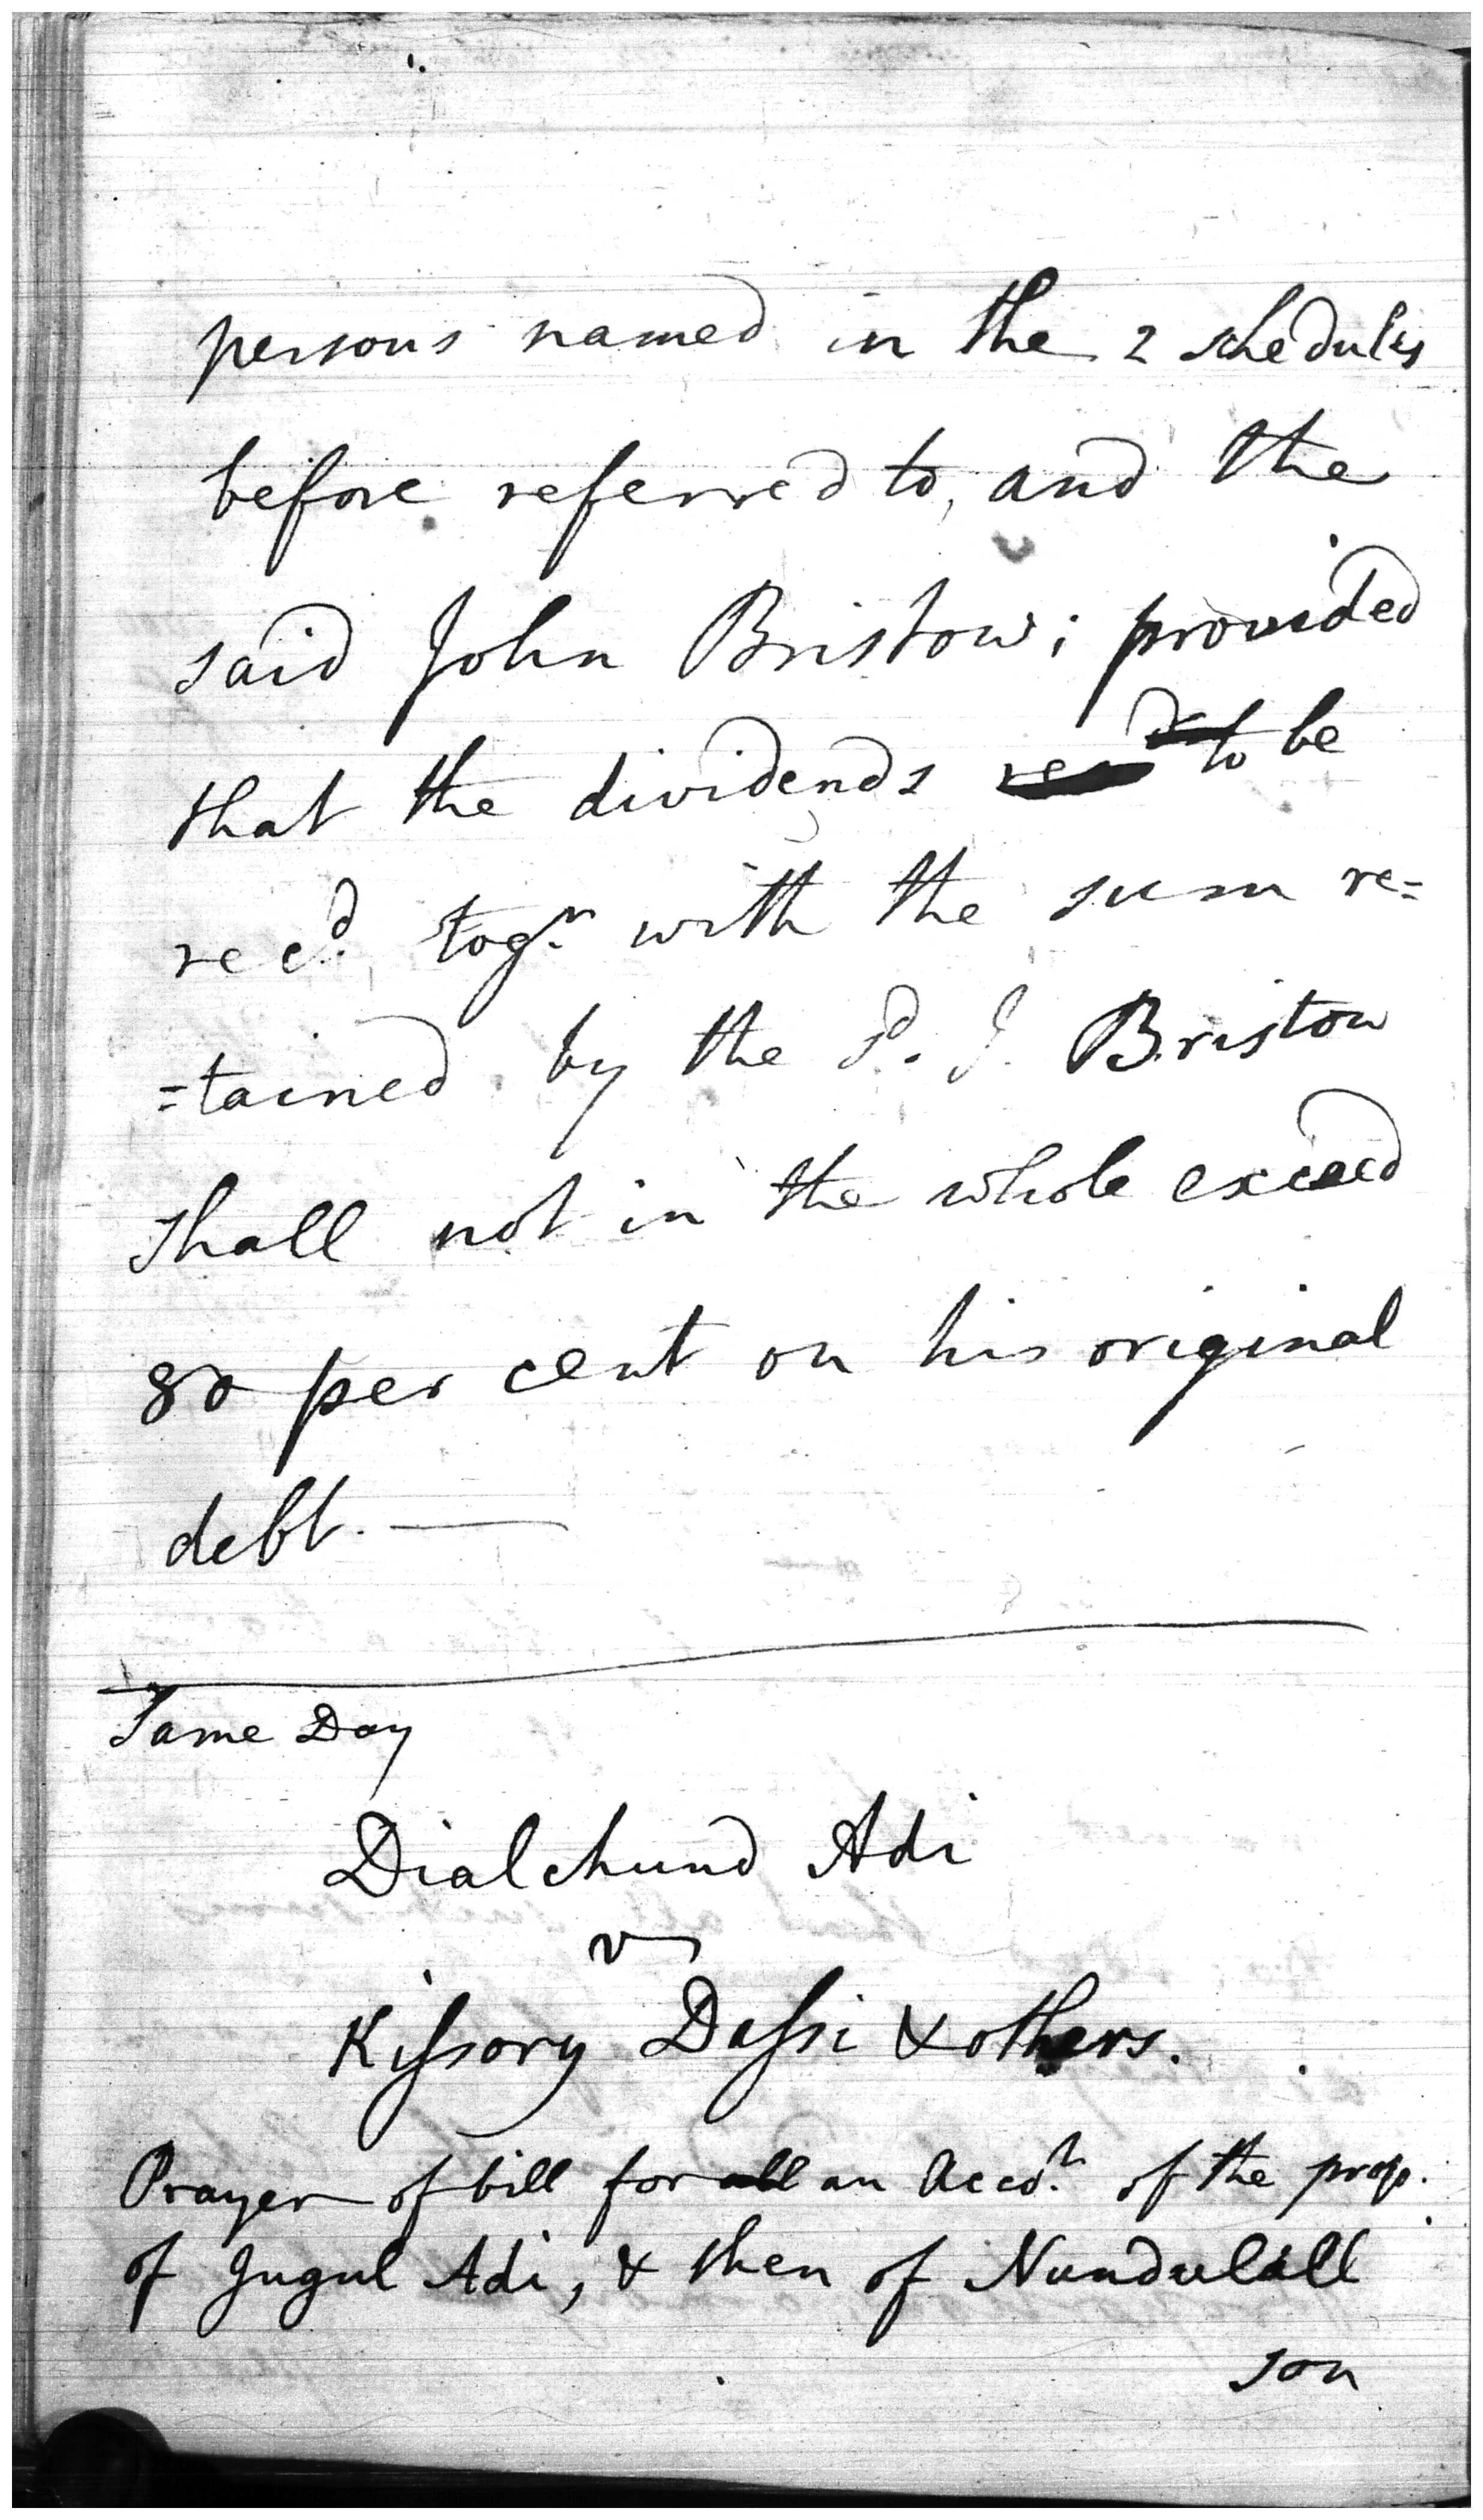 persons named in the 2 schedules
before referred to, and the
said John Bristow; provided
that the dividends to be
recd. togr. with the sum re=
=tained by the Sd. J. Bristow
shall not in the whole exceed
80 per cent on his original
debt. —
Same Day
Dialchund Adi
v
Kissory Dassi & others.
Prayer of bill for all an Accot. of the prop.
of Jugul Adi, & then of Nundulall
son